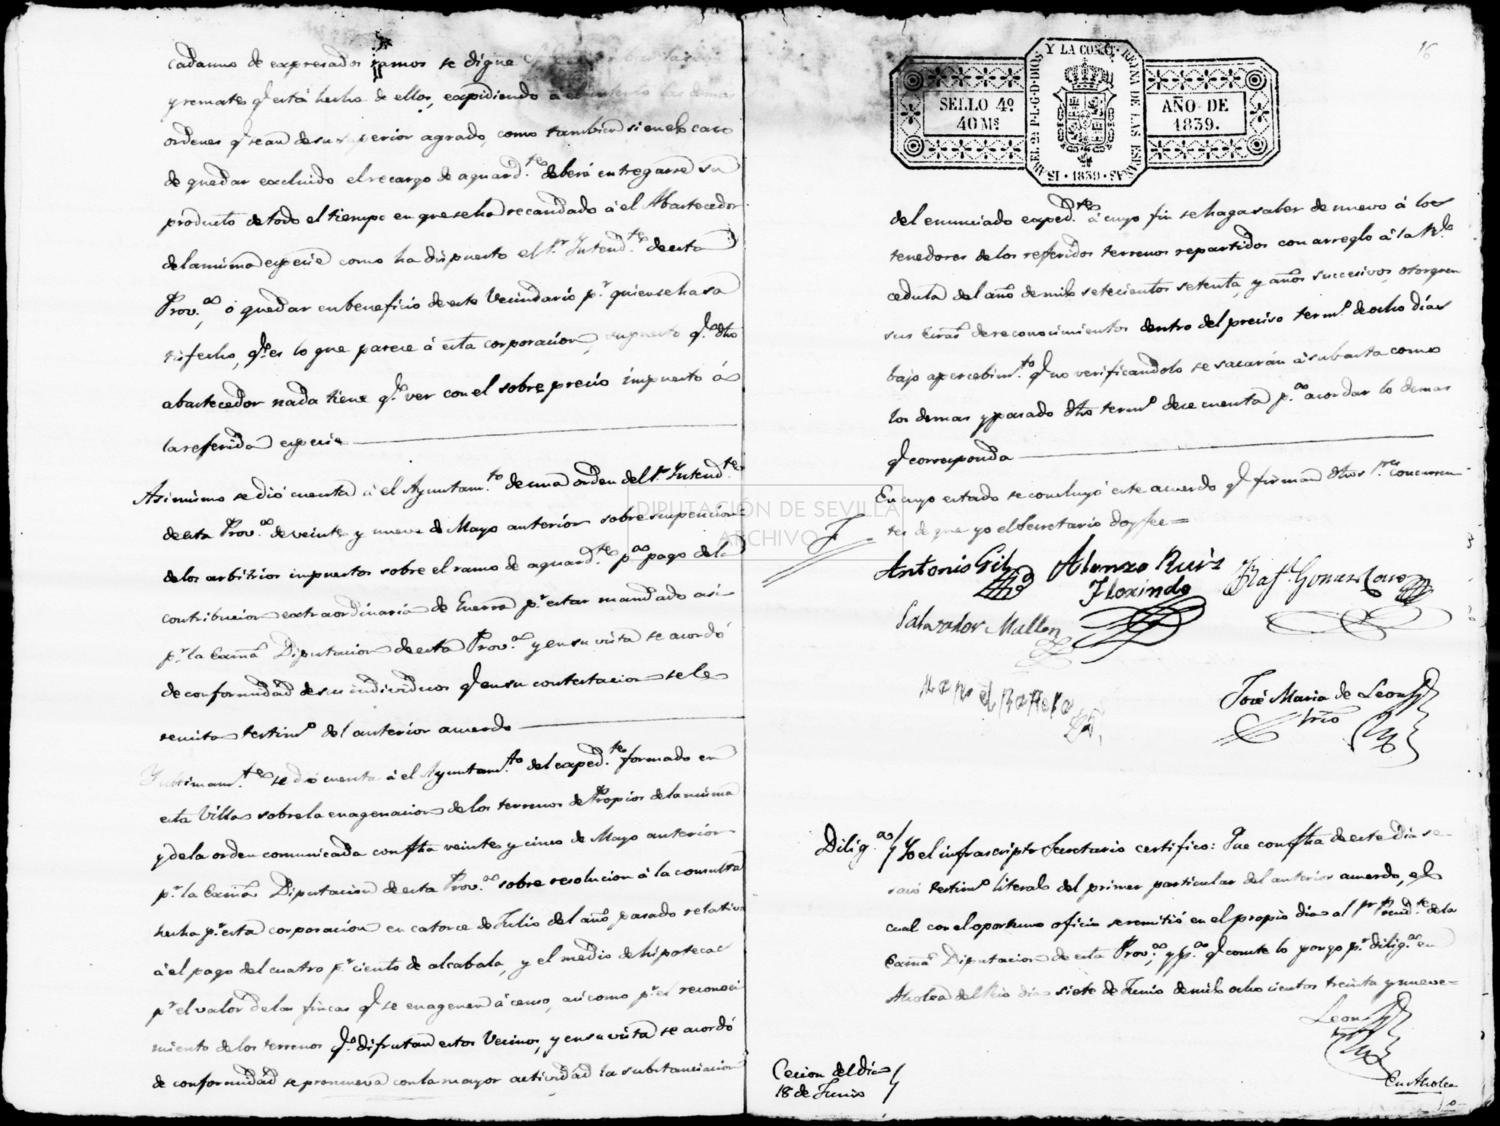 cadauno de expresados ramos se digne
y remates q.e está hecho de ellos, expidiendo á el las demas
ordenes q.e sean de su superior agrado, como tambien si en el caso
de quedar excluido el recargo de aguard.te deberá entregarse su
producto de todo el tiempo en que se ha recaudado á el Abastecedor
de la misma especie como ha dispuesto el S.r Intend.te de esta
Prov.a, ó quedar en beneficio de este Vecindario p.r quien se ha sa
tisfecho, q.e es lo que parece á esta corporacion, supuesto q.e dho
abastecedor nada tiene q.e ver con el sobre precio impuesto á
la referida especie
Asi mismo se dió cuenta á el Ayuntam.to de una orden del S.r Intend.te
de esta Prov.a de veinte y nueve de Mayo anterior sobre suspension
de los arbitrios impuestos sobre el ramo de aguard.te p.a pago de la
contribucion extraordinaria de Guerra p.r estar mandado asi
p.r la Exma. Diputacion de esta Prov.a y en su vista se acordó
de conformidad de sus individuos q.e en su contestacion se le
remita testim.o del anterior acuerdo
Ultimam.te se dió cuenta á el Ayuntam.to del exped.te formado en
esta Villa sobre la enagenacion de los terrenos de Propios de la misma
y de la orden comunicada con fha veinte y cinco de Mayo anterior
p.r la Exma. Diputacion de esta Prov.a sobre resolucion á la consulta
hecha p.r esta corporacion en catorce de Julio del año pasado relativa
á el pago del cuatro p.r ciento de alcabala, y el medio de hipotecas
p.r el valor de las fincas q.e se enagenen á censo, asi como p.r el reconoci
miento de los terrenos q.e disfrutan estos Vecinos, y en su vista se acordó
de conformidad se promueva con la mayor actividad la substanciacion
16
ISABEL 2ª P.L.G.D.DIOS Y LA CONST. REINA DE LAS ESPAÑAS · 1839 ·
SELLO 4º
40 Ms
AÑO DE
1839.
del enunciado exped.te á cuyo fin se haga saber de nuevo á los
tenedores de los referidos terrenos repartidos con arreglo á la R.l
cedula del año de mil setecientos setenta, y años succesivos, otorguen
sus de reconocimientos dentro del preciso term.o de ocho dias
bajo apercebim.to q.e no verificandolo se sacarán á subasta como
los demas y pasado dho term.o dese cuenta p.a acordar lo demas
q.e corresponda
En cuyo estado se concluyó este acuerdo q.e firman dhos S.res concurren
tes de que yo el Secretario doy fee =
DIPUTACIÓN DE SEVILLA
ARCHIVO
Antonio Gil
Alonzo Ruiz
Florindo
Salvador Mullen
José Maria de Leon
Srio
Dilig.a Yo el infrascripto Secretario certifico: Que con fha de este dia se
sacó testim.o literal del primer particular del anterior acuerdo, el
cual con el oportuno oficio se remitió en el propio dia al S.r Presid.te de la
Exma. Diputacion de esta Prov.a y p.a q.e conste lo pongo p.r dilig.a en
Alcolea del Rio dia siete de Junio de mil ocho cientos treinta y nueve =
Leon
Cecion del dia
18 de Junio
En Alcolea